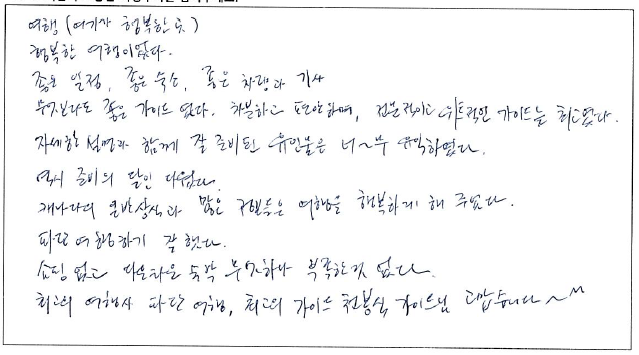 여행 (여기가 행복한 곳)
행복한 여행이었다.
좋은 일정, 좋은 숙소, 좋은 차량과 기사
무엇보다도 좋은 가이드 였다. 차분하고 편안하며, 전문적이고 위트적인 가이드는 최고였다.
자세한 설명과 함께 잘 준비된 유인물은 너~무 유익하였다.
역시 준비의 달인 다웠다.
캐나다의 일반상식과 많은 은 여행을 행복하게 해 주었다.
파란 여행하기 잘 했다.
쇼핑 없고 다운타운 숙박 무엇하나 부족한것 없다.
최고의 여행사 파란 여행, 최고의 가이드 천봉식 가이드님 고맙습니다~